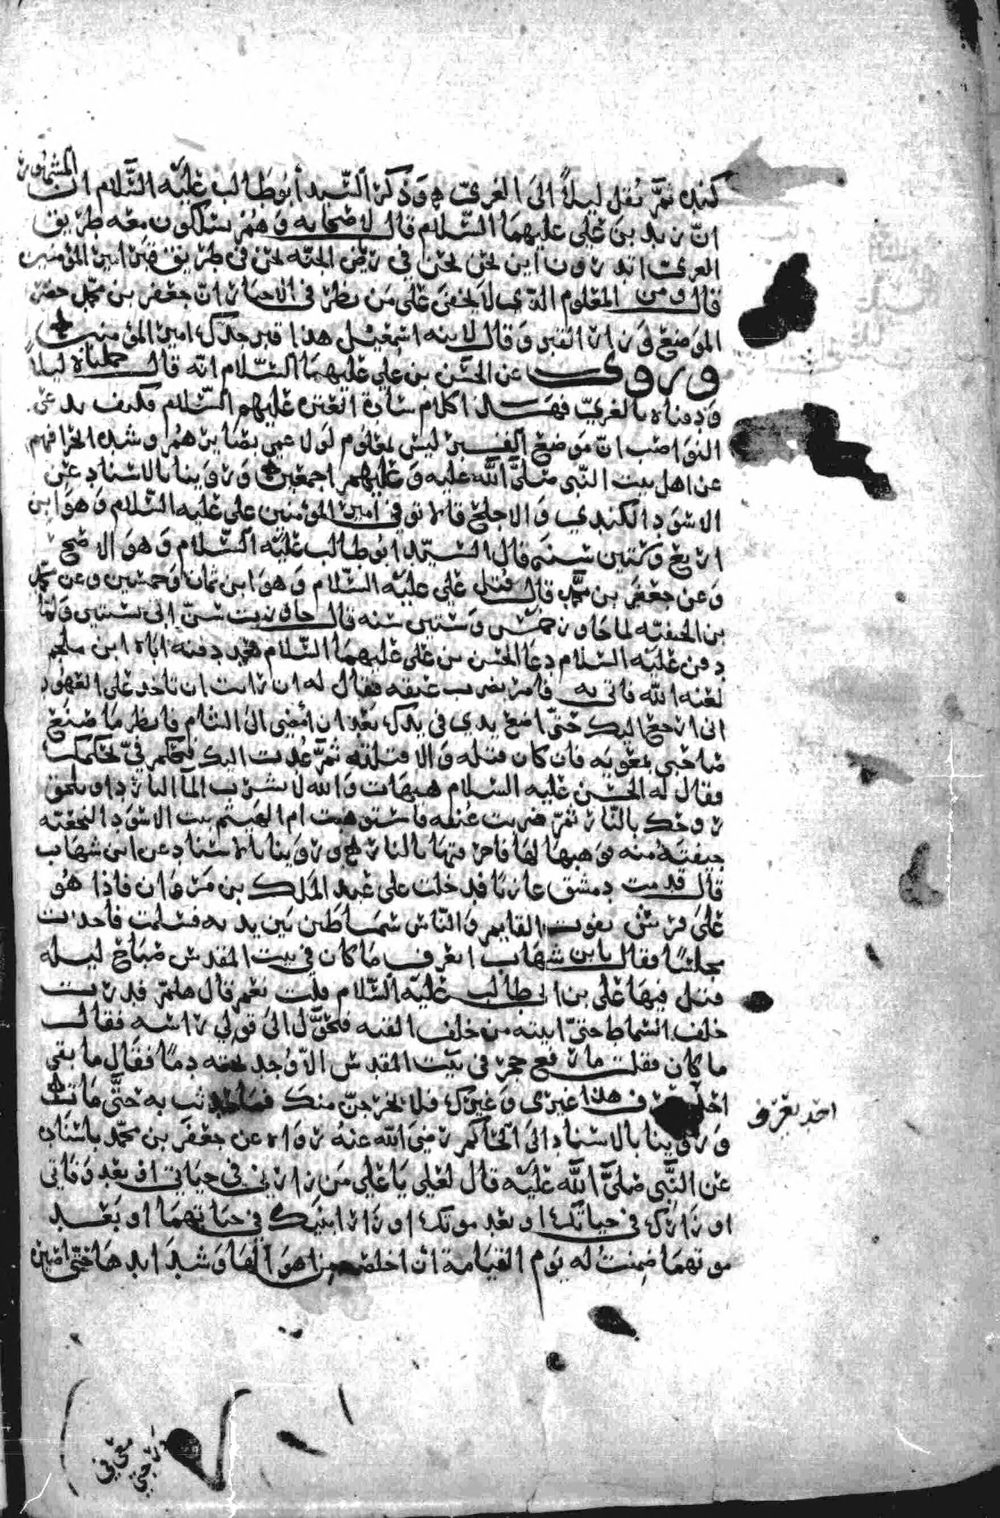 كنده ثمَّ نُقل ليلاً الى الغريّ وَذكرَ السَّيد أبوطالب عَليْه السَّلام ان المشهورة
انّ زيد بن عَلي عليهما السَّلام قال لاصحابه وَهُمْ يسلكون معه طريق
الغري اتدرون اين نحن نحن في رياض الجنّه نحن في طريق قبر امير المؤمنين
قال ومن المعلوم الذي لا يخفى عَلى مَن نظر في الاخبار انّ جعفر بن محمّد حضر
الموَضع وَزار القبر وَقال لابنه اسمعيل هذا قبر جدك امير المؤمنين
وروى عن الحسَن بن علي عَليهمَا السَّلام انّه قال حملناه ليلاً
وَدفناه بالغريّ فهَذا كلام سَادة العترة عَليهم السَّلام فكيف يدعى
النوَاصب انّ مَوضعَ القبر ليسَ بمعلوم لولا عمي بصَايرهُم وشده انحرافهم
عن اهل بيت النّبي صَلَّى الله عَليه وَعَليهمر اجمعين وَروَينا بالاسناد عَن
الاسوَد الكندي وَالاجلح قالا توفي امير المؤمنين علي عَليه السَّلام وَهوَ ابن
اربع وَستين سَنه قال السَّيد ابوطالب عَليْه السَّلام وَهوَ الاصح
وَعن جعفر بن محمَّد قال قتل عَلي عليْه السَّلام وَهوَ ابن ثمان وَخمسين وعن محمّد
بن الحنفيه لما جاوز خمسًا وَستين سَنه قال جاوزت سنّ ابى بسنتين وَلمّا
دفن عَليْه السَّلام دعَا الحسَن بن عَلي عَليهمَا السَّلام بعد دفنه اباه ابن ملجم
لعنه الله فاتي به فامر بضرب عنقه فقال له ان رايت ان تاخذ عَلي العهود
انى ارجع اليك حَتَّى اضع يدي في يدك بعد ان أمضي الى الشام فانظر مَا صَنع
صَاحبي بمعويَه فان كان قتله وَالا قتلته ثمَّ عُدت اليك تحكم فيَّ بحكمك
فقال له الحسَن عَليه السَّلام هيهَات وَالله لا تشرب المآ البارد او يلحق
روحك بالنّار ثمَّ ضربَت عُنقه فاستوهبت ام الهيثم بنت الاسوَد النخعيّه
جيفتَه منه فوَهبهَا لهَا فاحرقتهَا بالنار وروَينا بالاسناد عن ابن شهَاب
قال قدمت دمشق غازيًا فدخلت على عَبد الملك بن مَروَان فاذا هُو
عَلى فرش يفوت القايم وَالناس سمَاطَين بَين يديه فسَلمت فاخذت
مجلسًا فقال يا بن شهَاب اتعرف مَا كان في بيت المقدس صَباح ليله
قتل فيهَا عَلي بن ابى طالب عَليْه السَّلام قلت نعَم قال هلمّ فدرت
خلف السّماط حتّى اتيته من خلف القبه فتحوَّل الىَ قولي راسَه فقال
ما كان فقلت ما رفع حجر في بيَت المقدس الا وُجد تحته دمًا فقال ما بقي
احد يَعرف هذا غيري وَغيرك فلا يخرجنّ منك فما حدثت به حتّى مَات
احد يعرف
وَروَينا بالاسناد الى الحَاكم رَضيَ الله عنهُ رواه عن جعفر بن محمّد باسناده
عن النَّبي صَلَّى الله عَليْه قال لعَلي يَا عَلي مَن زارني في حيَاتي او بعد وَفاتي
او زارك في حياتك او بعد موتك او زار ابنيك في حيَاتهمَا او بَعَد
موتهمَا ضمنت له يوم القيامة أن اخلصه من اهوَالهَا وَشدَايدهَا حتّى اصير
معي في
درجتي